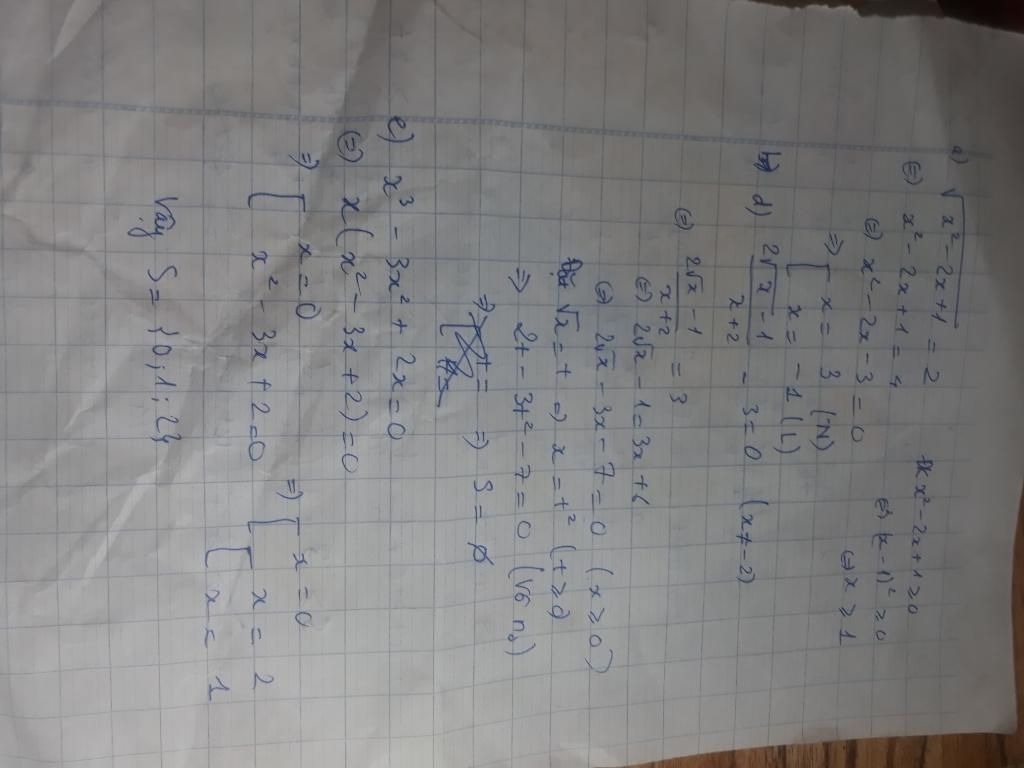 a) √(x² - 2x + 1) = 2 ĐK x² - 2x + 1 ≥ 0
(=) x² - 2x + 1 = 4 (=) (x - 1)² ≥ 0
(=) x² - 2x - 3 = 0 (=) x ≥ 1
=> [ x = 3 (N)
[ x = -1 (L)
d) (2√x - 1)/(x + 2) - 3 = 0 (x ≠ -2)
(=) (2√x - 1)/(x + 2) = 3
(=) 2√x - 1 = 3x + 6
(=) 2√x - 3x - 7 = 0 (x ≥ 0)
Đặt √x = t => x = t² (t ≥ 0)
=> 2t - 3t² - 7 = 0 (VG n0)
=> S = ∅
e) x³ - 3x² + 2x = 0
(=) x(x² - 3x + 2) = 0
=> [ x = 0 => [ x = 0
[ x² - 3x + 2 = 0 [ x = 2
[ x = 1
Vậy S = {0; 1; 2}